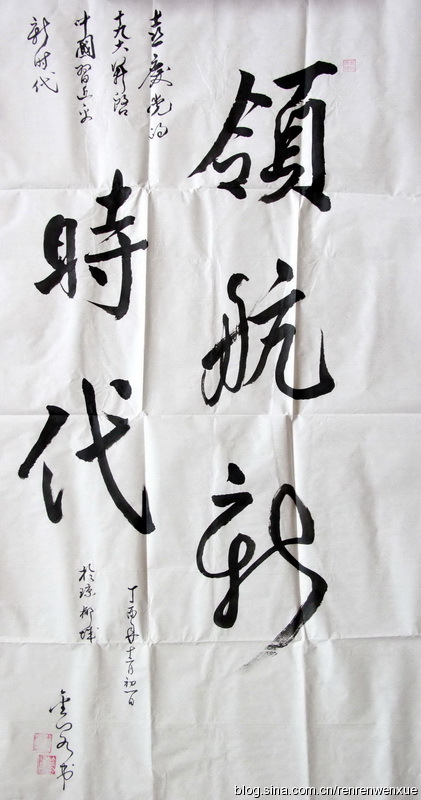 領航新
時代
喜慶党的
十九大
國習近平
新时代
丁酉年
月初一日
於琼椰城
书
blog.sina.com.cn/renrenwenxue